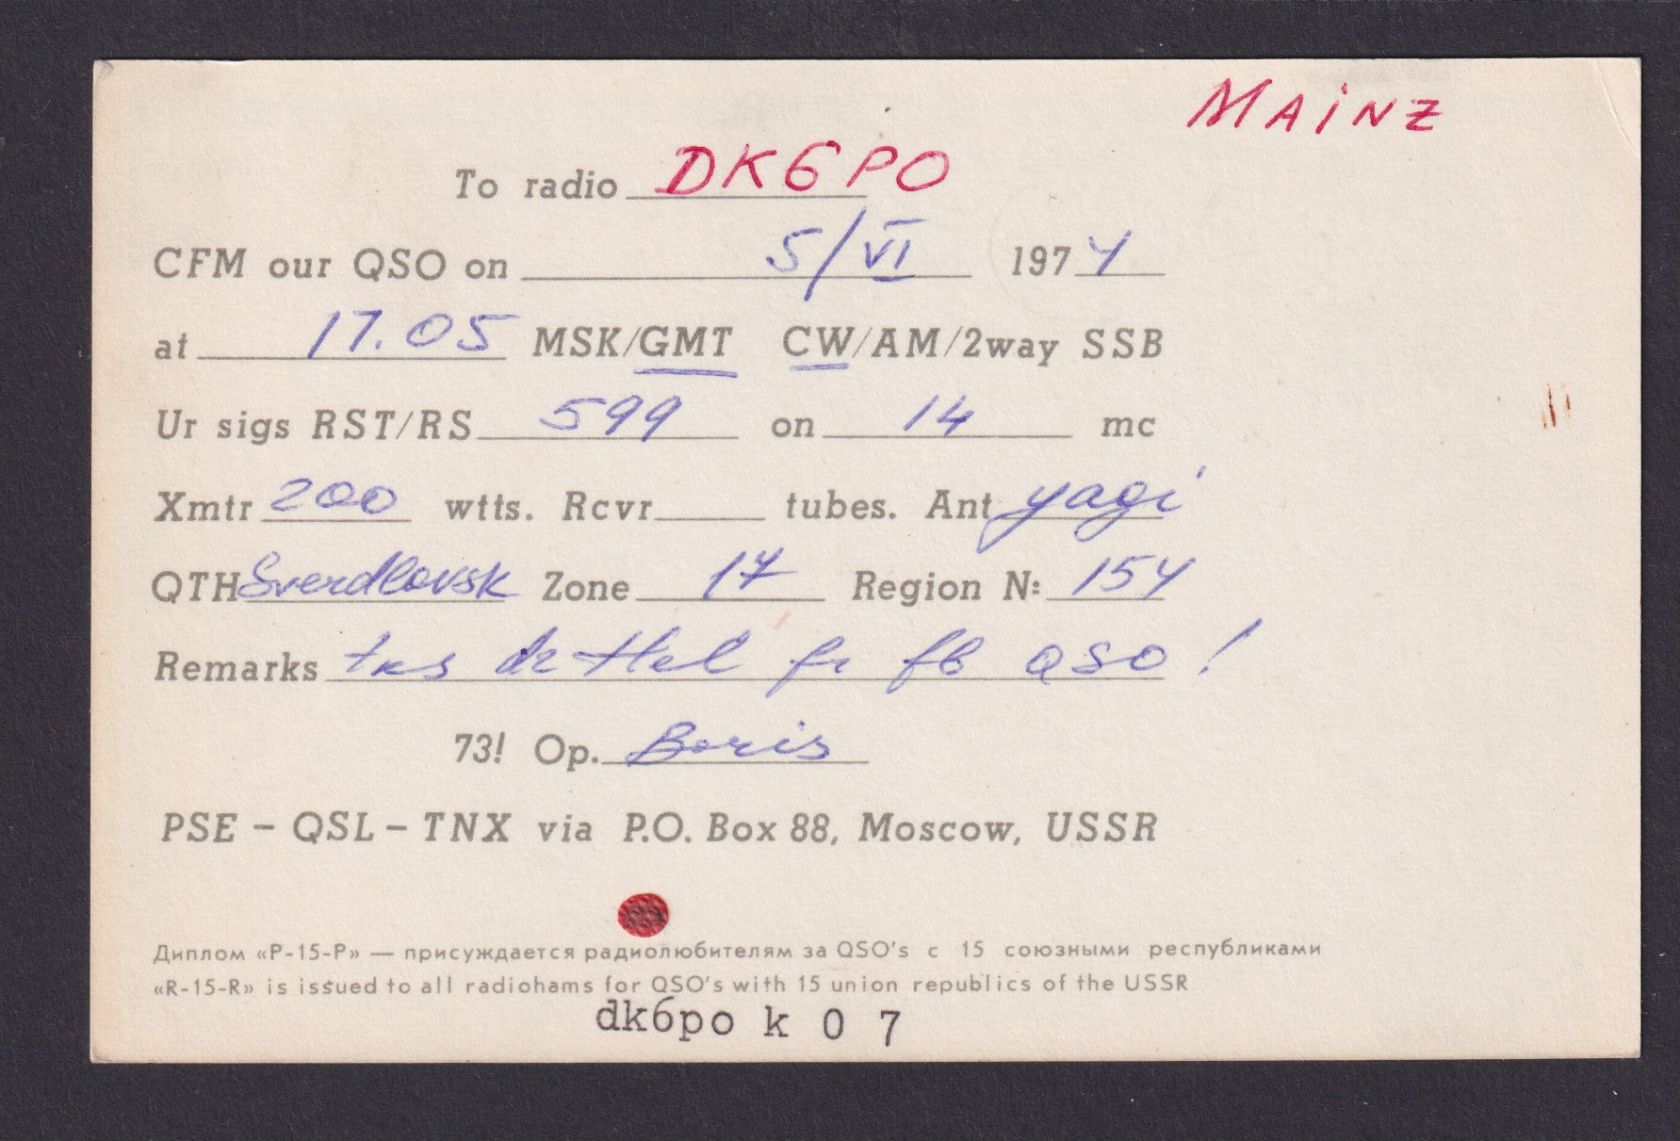 MAINZ
To radio DK6PO
CFM our QSO on 5/VI 1974
at 17.05 MSK/GMT CW/AM/2way SSB
Ur sigs RST/RS 599 on 14 mc
Xmtr 200 wtts. Rcvr tubes. Ant yagi
QTH Sverdlovsk Zone 17 Region N: 154
Remarks tks dr Hel fr fb QSO!
73! Op. Boris
PSE – QSL – TNX via P.O. Box 88, Moscow, USSR
Диплом «Р-15-Р» — присуждается радиолюбителям за QSO's с 15 союзными республиками
«R-15-R» is issued to all radiohams for QSO's with 15 union republics of the USSR
dk6po k 0 7